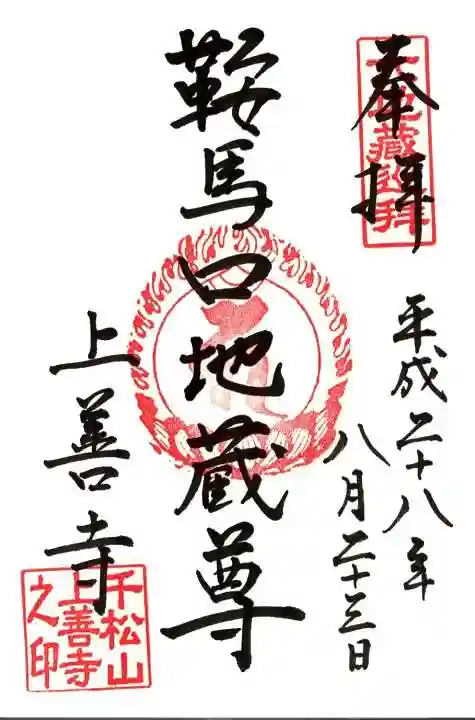 奉拝
六地蔵巡拝
平成二十八年
八月二十三日
鞍馬口地蔵尊
上善寺
千松山
上善寺
之印